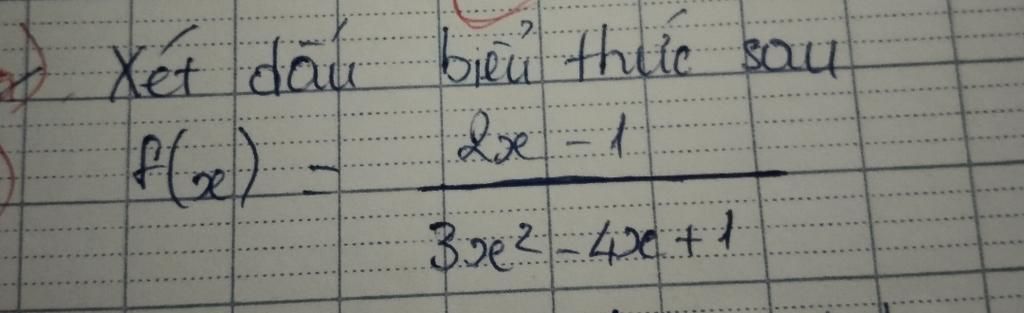 Xét dấu biểu thức sau
f(x) = 2x - 1
3x² - 4x + 1